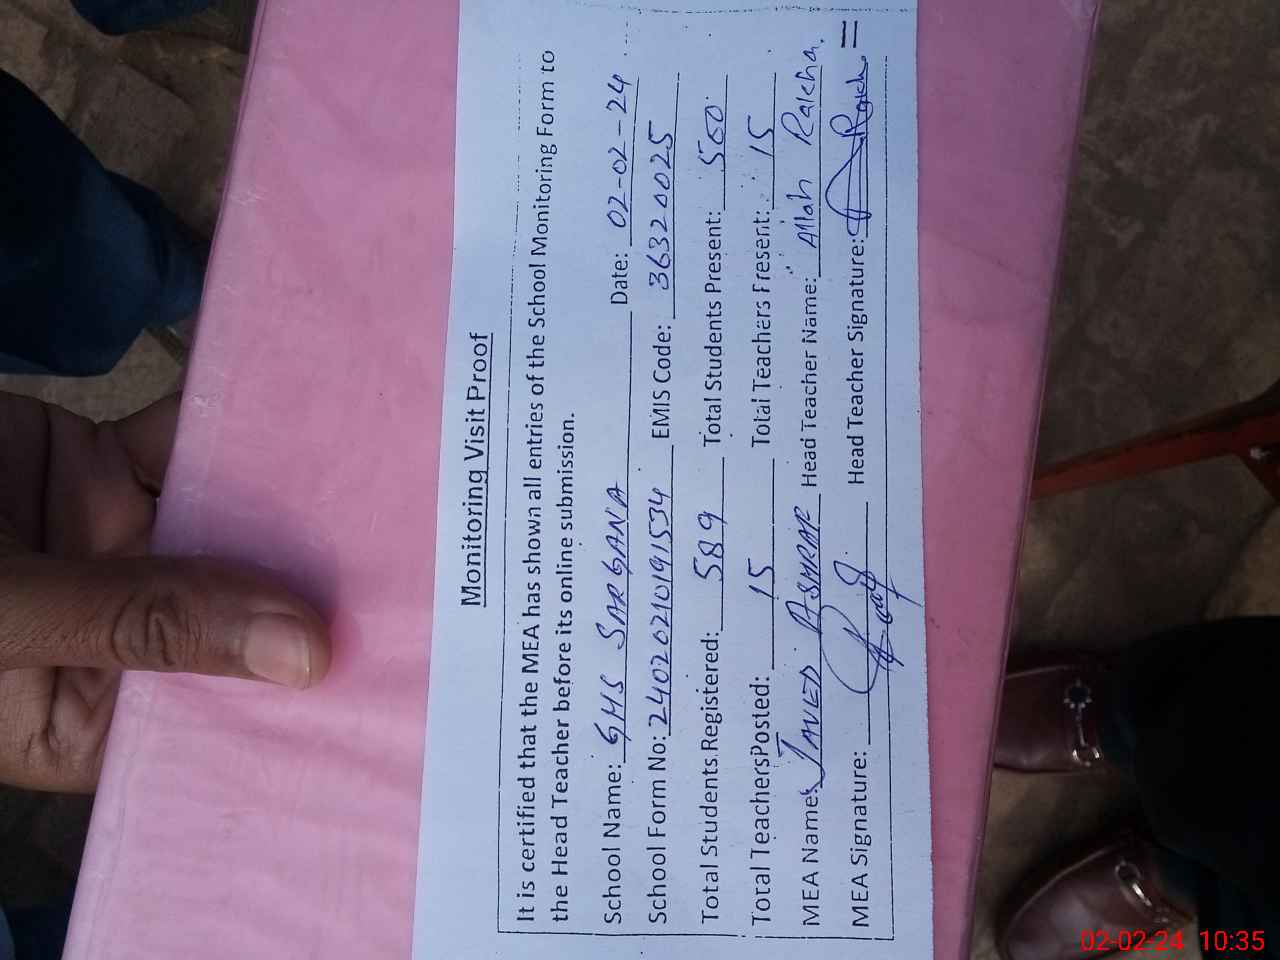 Monitoring Visit Proof
It is certified that the MEA has shown all entries of the School Monitoring Form to
the Head Teacher before its online submission.
School Name: GHS SARGANA Date: 02-02-24
School Form No: 24020210191534 EMIS Code: 36320025
Total Students Registered: 589 Total Students Present: 560
Total TeachersPosted: 15 Total Teachers Present: 15
MEA Name: JAVED ASHRAF Head Teacher Name: Allah Rakha.
MEA Signature: Head Teacher Signature:
02-02-24 10:35